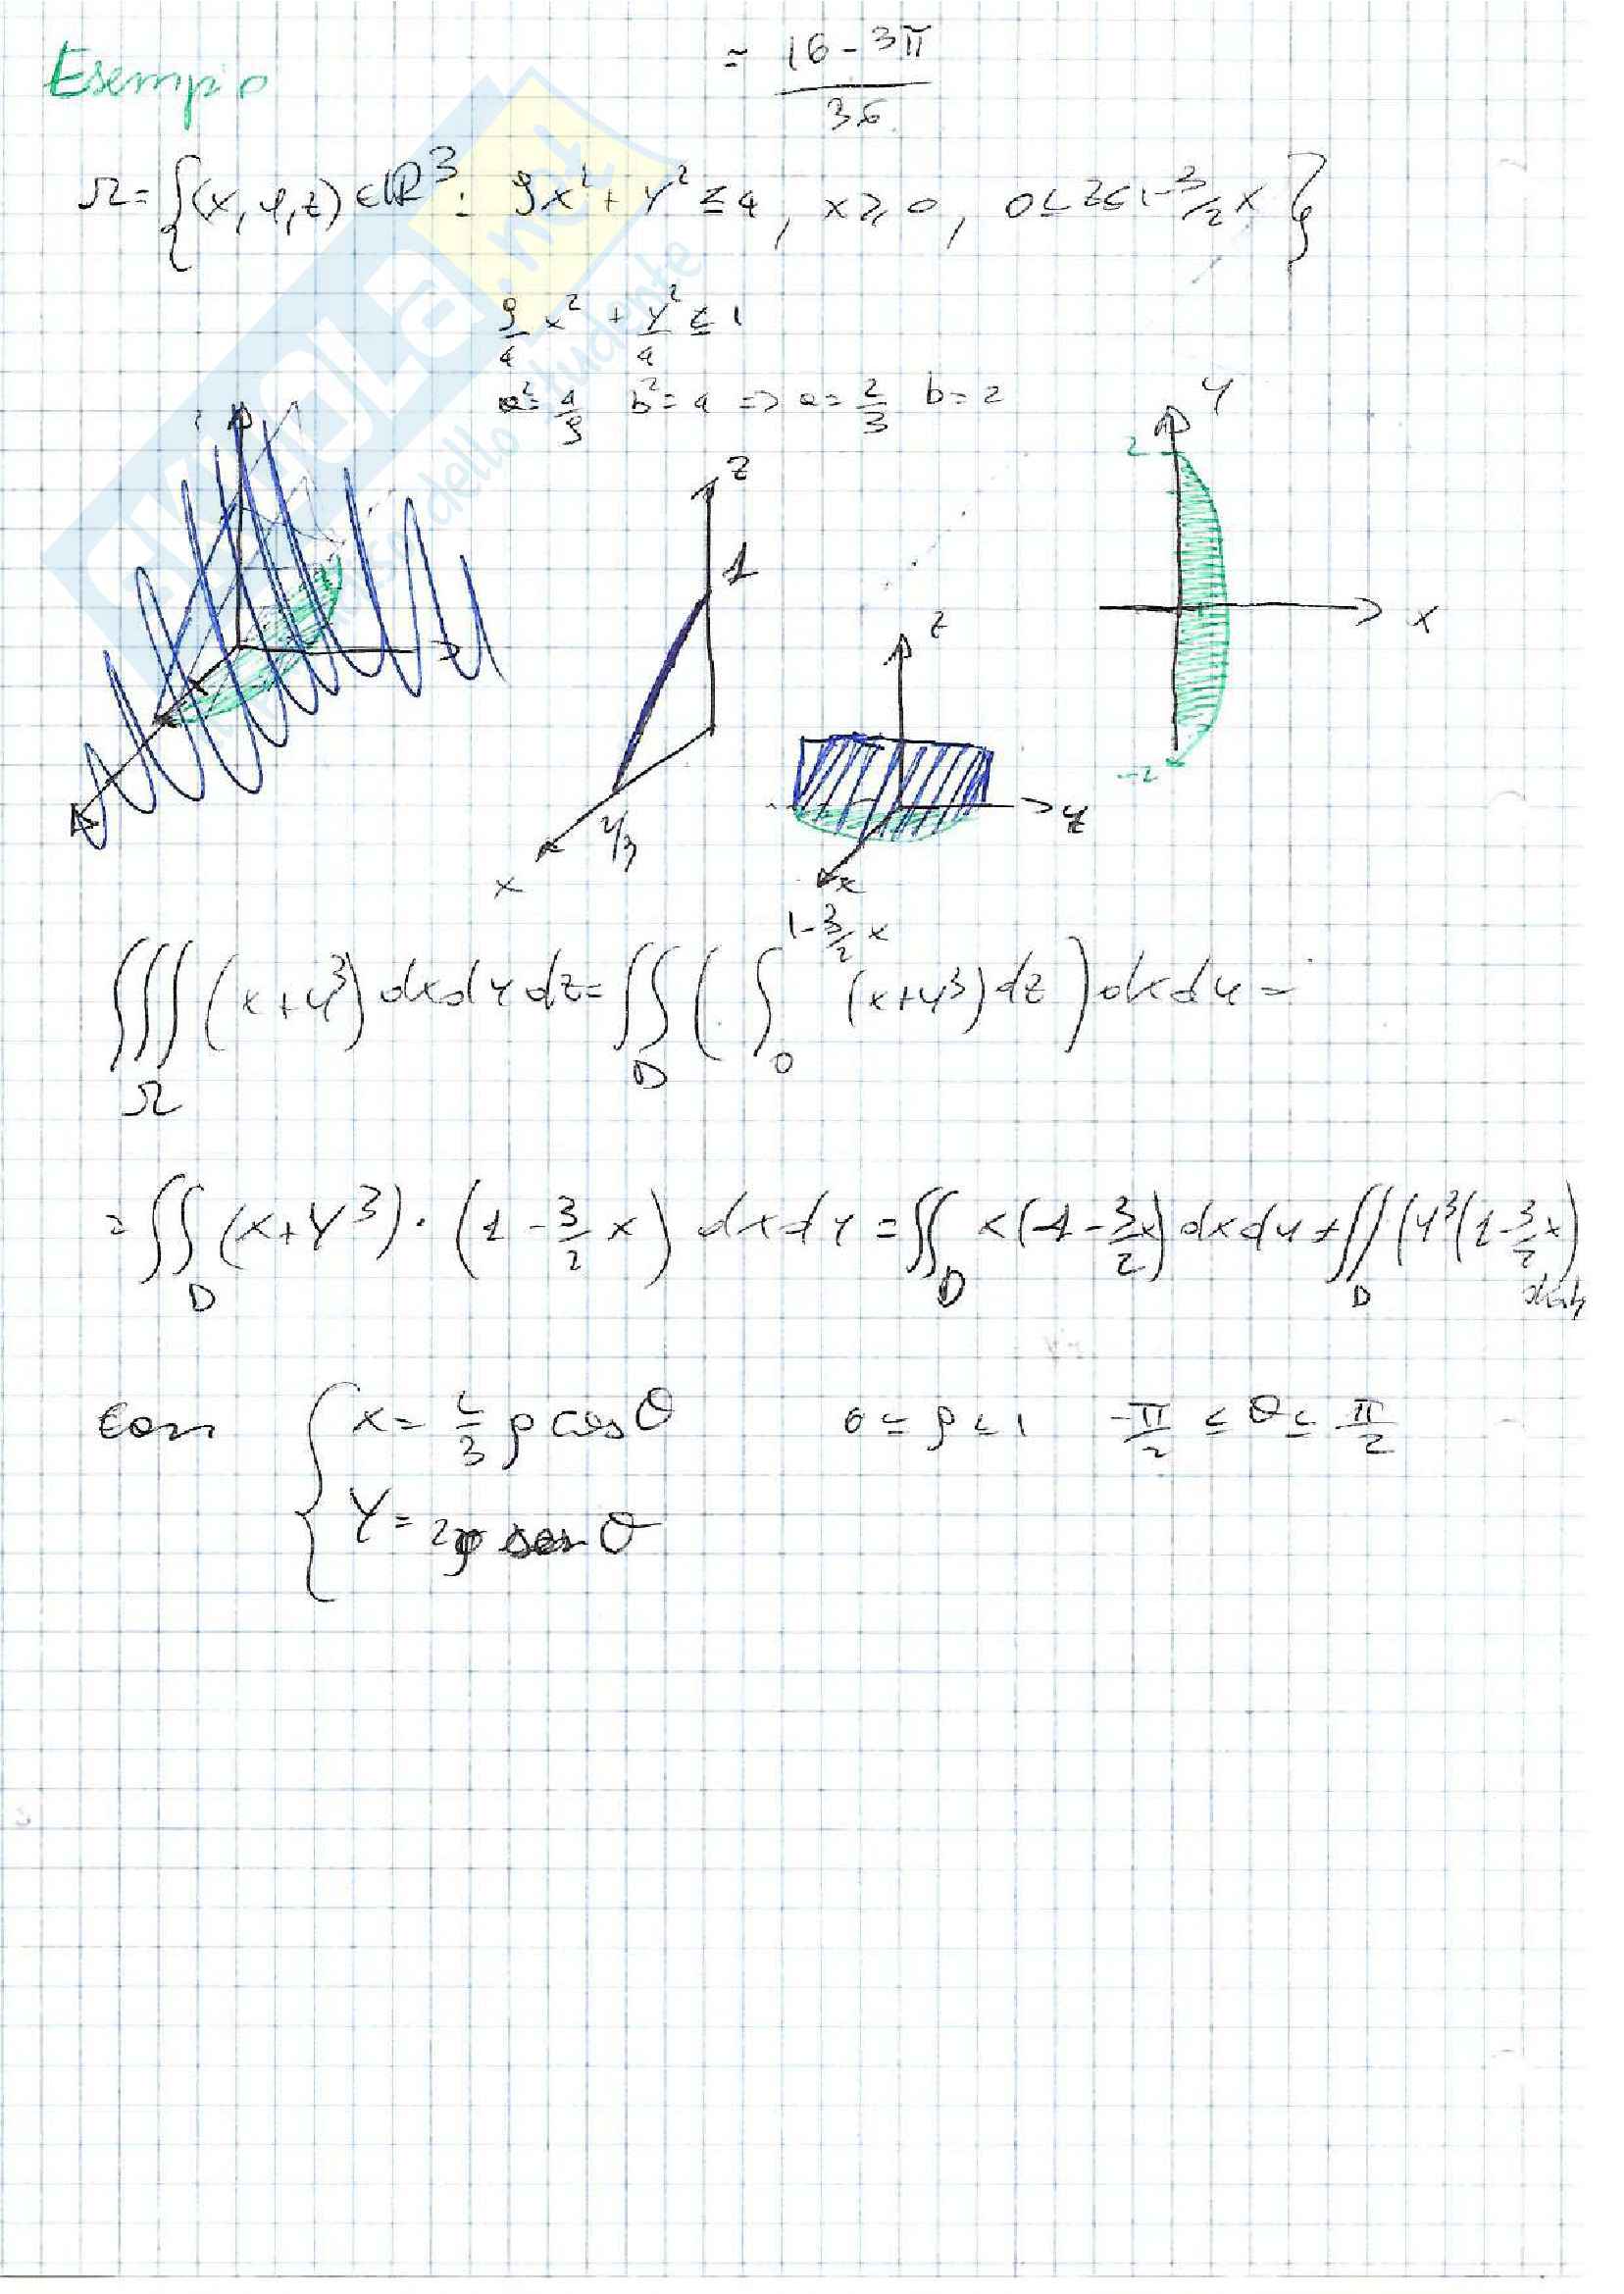 Esempio
= (16 - 3π)/36
Ω = {(x, y, z) ∈ ℝ³ : 9x² + y² ≤ 4, x ≥ 0, 0 ≤ z ≤ 1 - 3/2 x}
9/4 x² + y²/4 ≤ 1
a² = 4/9 b² = 4 => a = 2/3 b = 2
z
1
2/3
x
z
y
x
y
2
x
-2
∭_Ω (x + y³) dx dy dz = ∬_D (∫_0^{1 - 3/2 x} (x + y³) dz) dx dy =
= ∬_D (x + y³) · (1 - 3/2 x) dx dy = ∬_D x(1 - 3/2 x) dx dy + ∬_D (y³(1 - 3/2 x) dx dy
con { x = 2/3 ρ cos θ 0 ≤ ρ ≤ 1 -π/2 ≤ θ ≤ π/2
y = 2ρ sen θ
SKUOLA.net
dello studente